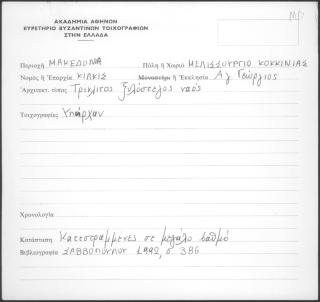 ΑΚΑΔΗΜΙΑ ΑΘΗΝΩΝ
ΕΥΡΕΤΗΡΙΟ ΒΥΖΑΝΤΙΝΩΝ ΤΟΙΧΟΓΡΑΦΙΩΝ
ΣΤΗΝ ΕΛΛΑΔΑ
Περιοχή ΜΑΚΕΔΟΝΙΑ Πόλη ή Χωριό ΜΕΛΙΣΣΟΥΡΓΙΟ ΚΟΚΚΙΝΙΑΣ
Νομός ή Ἐπαρχία ΚΙΛΚΙΣ Μοναστήρι ή Ἐκκλησία Αγ Γεώργιος
Ἀρχιτεκτ. τύπος Τρίκλιτος ξυλόστεγος ναός
Τοιχογραφίες Υπήρχαν
Χρονολογία
Κατάσταση Κατεστραμμένες σε μεγάλο βαθμό
Βιβλιογραφία 1992, σ. 386